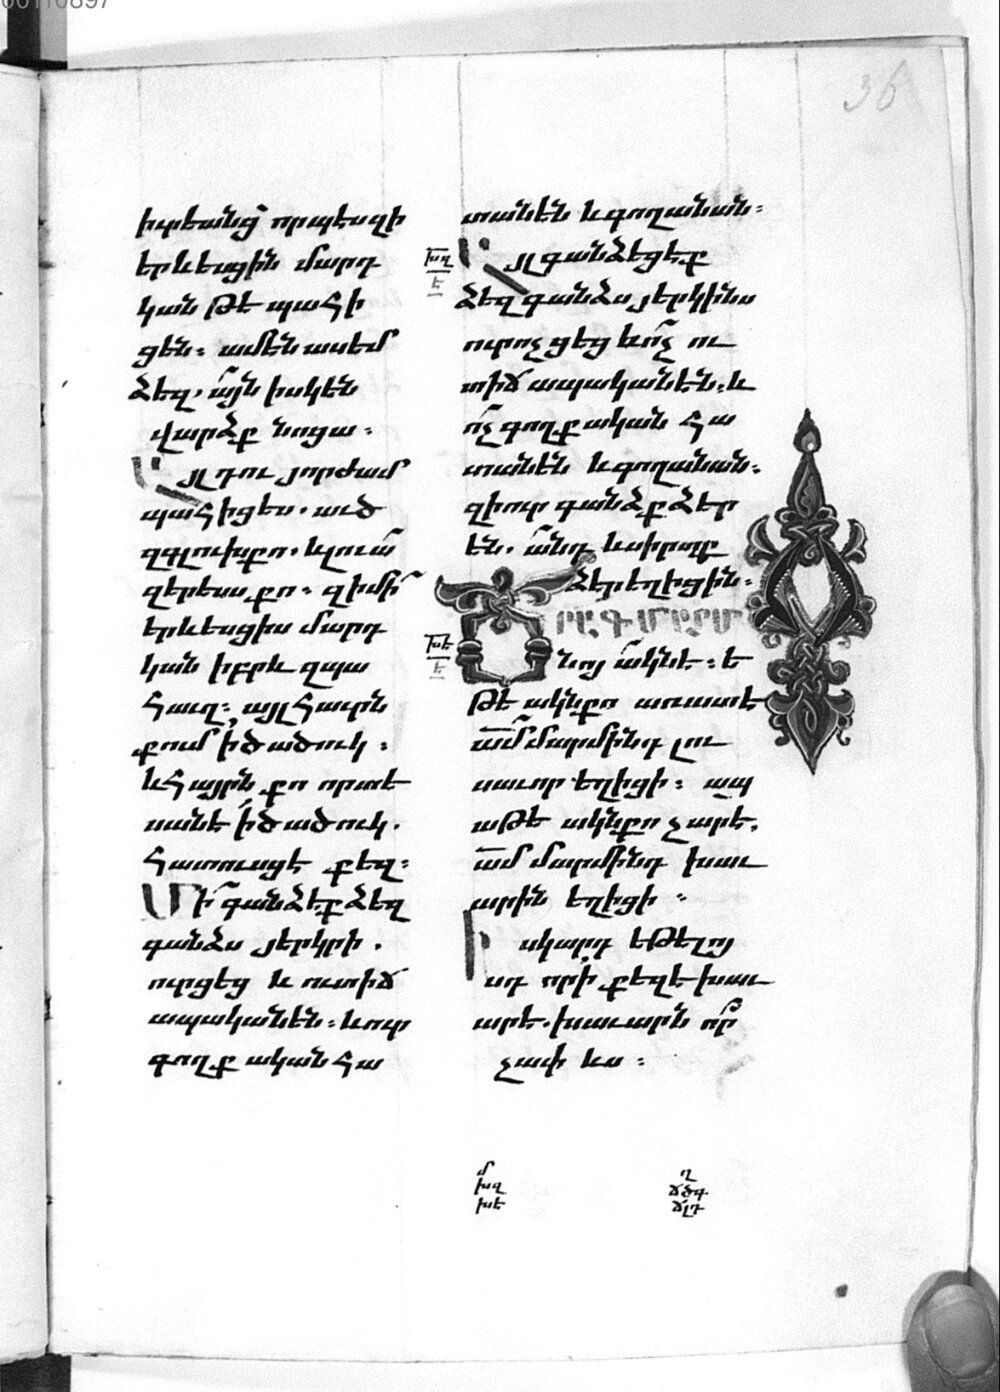 36
իրեանց որպէսզի
երևեսցին մարդ
կան թէ պահի
ցեն։ ամէն ասեմ
ձեզ. այն իսկէն
վարձք նոցա։
Այլ դու յորժամ
պահիցես. աւծ
զգլուխ քո. և լուա
զերեսս քո։ զի մի
երևեսցիս մարդ
կան իբրև զպա
հաւղ։ այլ հաւրն
քում ի ծածուկ։
և հայրն քո որ տե
սանէ ի ծածուկ.
հատուսցէ քեզ։
Մի գանձէք ձեզ
գանձս յերկրի.
ուր ցեց և ուտիճ
ապականեն։ և ուր
գողք ական հա
տանեն և գողանան։
Այլ գանձեցէք
ձեզ գանձս յերկինս
ուր ոչ ցեց և ոչ ու
տիճ ապականեն. և
ոչ գողք ական հա
տանեն և գողանան։
զի ուր գանձք ձեր
են. անդ և սիրտք
ձեր եղիցին։
Ճրագ մարմ
նոյ ակն է։ ե
թէ ակն քո առատ է
ամ մարմինդ լու
սաւոր եղիցի։ ապ
ա թէ ակն քո չար է.
ամ մարմինդ խաւ
արին եղիցի։
Իսկ արդ եթէ լոյ
սդ որ ի քեզ է խաւ
ար է. խաւարն որ
չափ ևս։
խզ
ե
խե
ե
մ
խզ
խէ
ղ
ճծգ
ճլդ